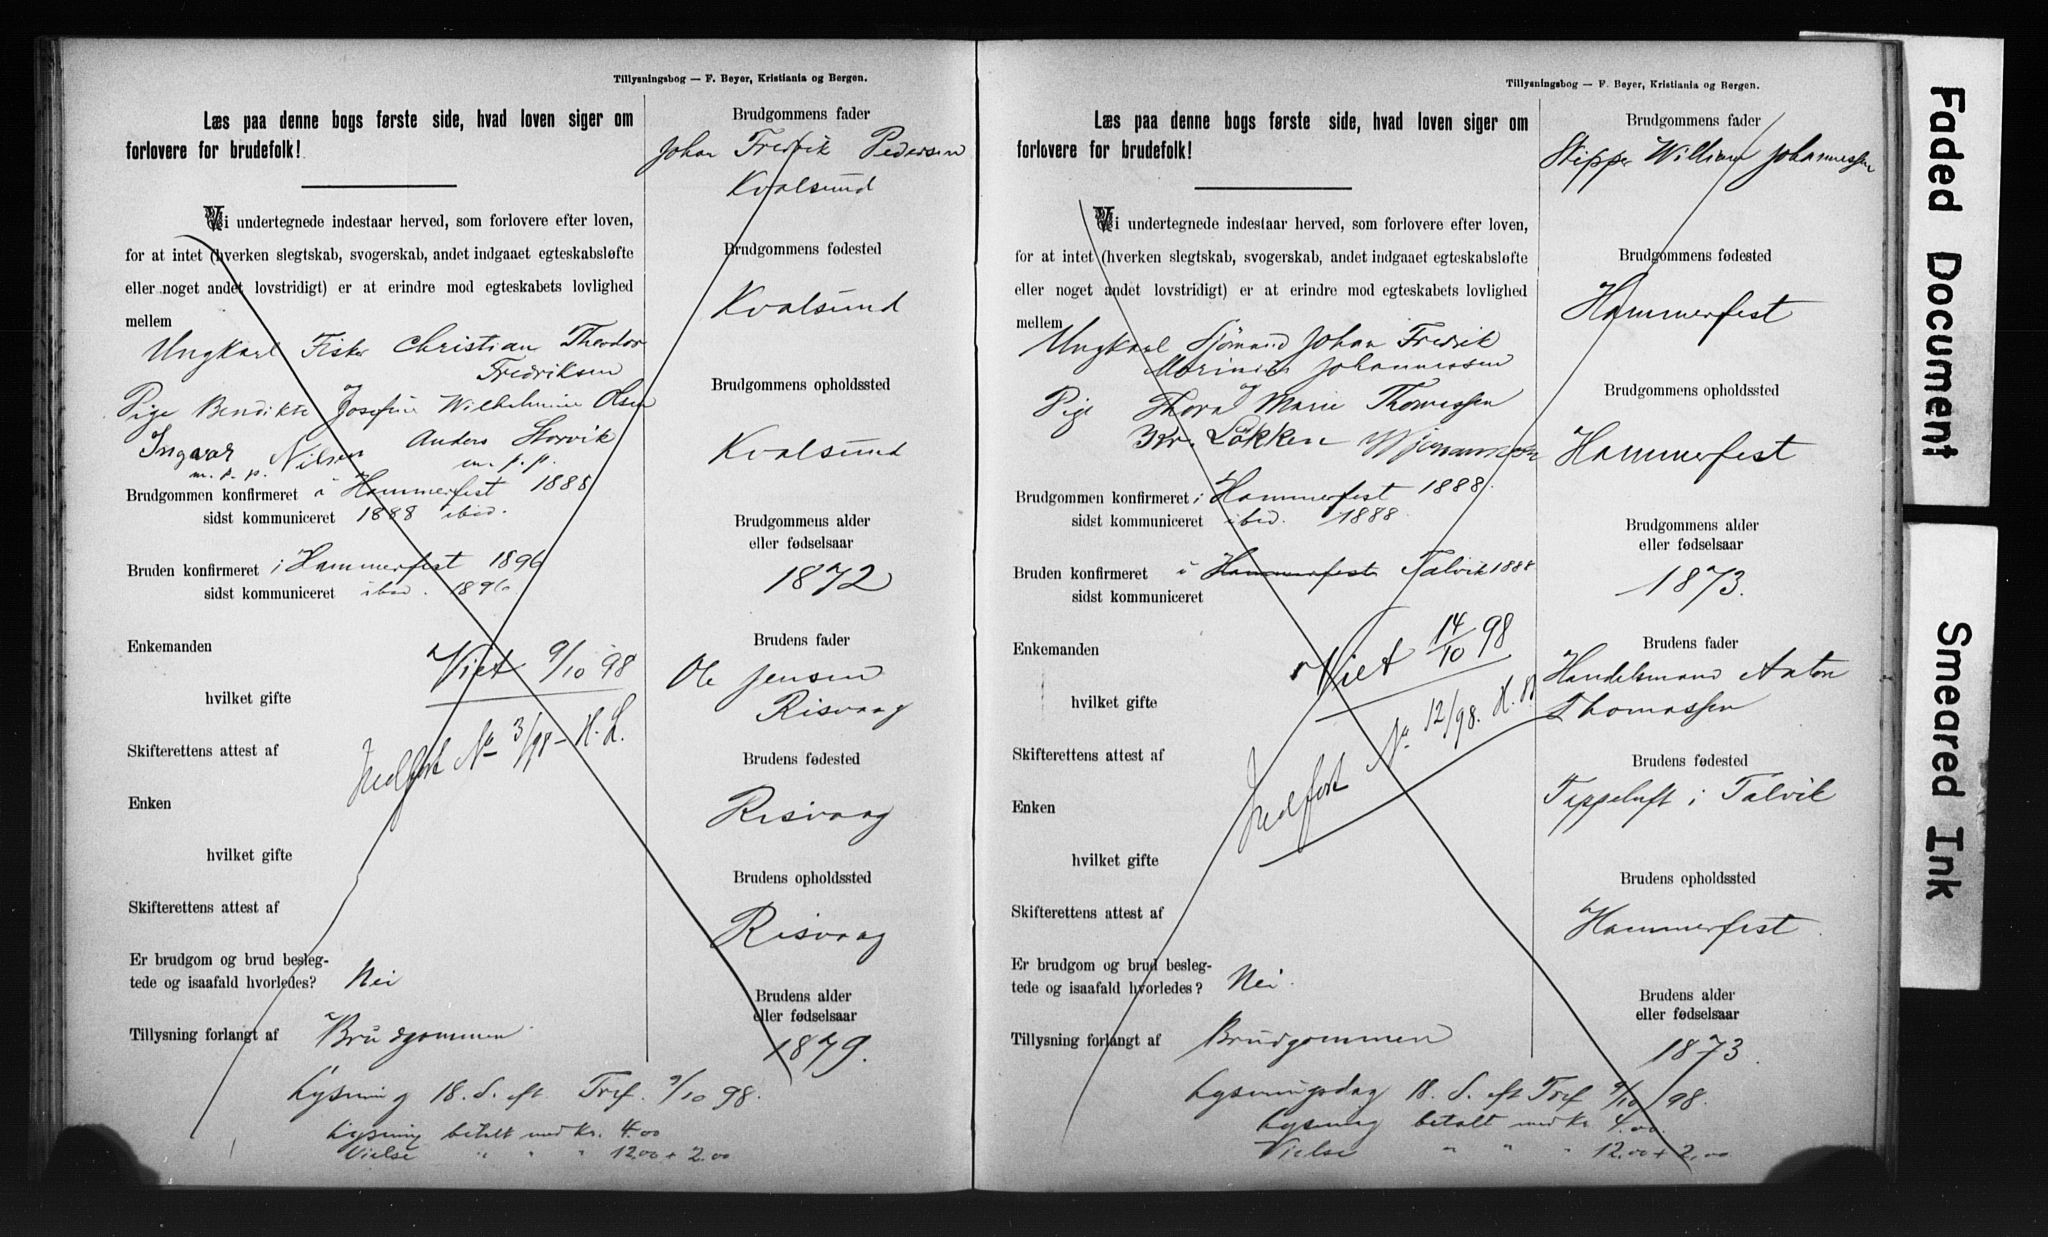 Tillysningsbog — F. Beyer, Kristiania og Bergen.
Læs paa denne bogs første side, hvad loven siger om
forlovere for brudefolk!
Vi undertegnede indestaar herved, som forlovere efter loven,
for at intet (hverken slegtskab, svogerskab, andet indgaaet egteskabsløfte
eller noget andet lovstridigt) er at erindre mod egteskabets lovlighed
mellem
Ungkarl Fisker Christian Theodor
Fredriksen
Pige Bendikte Josefine Wilhelmine Olsen
Ingvar Nilsen Anders Storvik
m. p. p. m. p. p.
Brudgommen konfirmeret i Hammerfest 1888
sidst kommuniceret 1888 ibid.
Bruden konfirmeret i Hammerfest 1896
sidst kommuniceret ibid. 1896
Enkemanden
Viet 9/10 98
hvilket gifte
Skifterettens attest af
Indført No 3/98 - H. L.
Enken
hvilket gifte
Skifterettens attest af
Er brudgom og brud besleg-
tede og isaafald hvorledes? Nei
Tillysning forlangt af Brudgommen
Lysning 18. S. eft. Tref. 9/10 98.
Lysning betalt med Kr. 4.00
Vielse " " " 12.00 + 2.00
Brudgommens fader
Johan Fredrik Pedersen
Kvalsund
Brudgommens fødested
Kvalsund
Brudgommens opholdssted
Kvalsund
Brudgommens alder
eller fødselsaar
1872
Brudens fader
Ole Jensen
Risvaag
Brudens fødested
Risvaag
Brudens opholdssted
Risvaag
Brudens alder
eller fødselsaar
1879.
Tillysningsbog — F. Beyer, Kristiania og Bergen.
Læs paa denne bogs første side, hvad loven siger om
forlovere for brudefolk!
Vi undertegnede indestaar herved, som forlovere efter loven,
for at intet (hverken slegtskab, svogerskab, andet indgaaet egteskabsløfte
eller noget andet lovstridigt) er at erindre mod egteskabets lovlighed
mellem
Ungkarl Sjømand Johan Fredrik
Marinius Johannessen
Pige Thora Marie Thomassen
Kr. Løkken
Brudgommen konfirmeret i Hammerfest 1888.
sidst kommuniceret ibid. 1888.
Bruden konfirmeret i Hammerfest Talvik 1888
sidst kommuniceret
Enkemanden
Viet 14/10 98
hvilket gifte
Skifterettens attest af
Indført No 12/98.
Enken
hvilket gifte
Skifterettens attest af
Er brudgom og brud besleg-
tede og isaafald hvorledes? Nei.
Tillysning forlangt af Brudgommen
Lysningsdag 18. S. eft Tref 9/10 98.
Lysning betalt med Kr 4.00.
Vielse " " " 12.00 + 2.00
Brudgommens fader
Skipper William Johannessen
Brudgommens fødested
Hammerfest
Brudgommens opholdssted
Hammerfest
Brudgommens alder
eller fødselsaar
1873.
Brudens fader
Handelsmand Anton
Thomassen
Brudens fødested
Tappeluft i Talvik
Brudens opholdssted
Hammerfest.
Brudens alder
eller fødselsaar
1873.
Faded Document
Smeared Ink